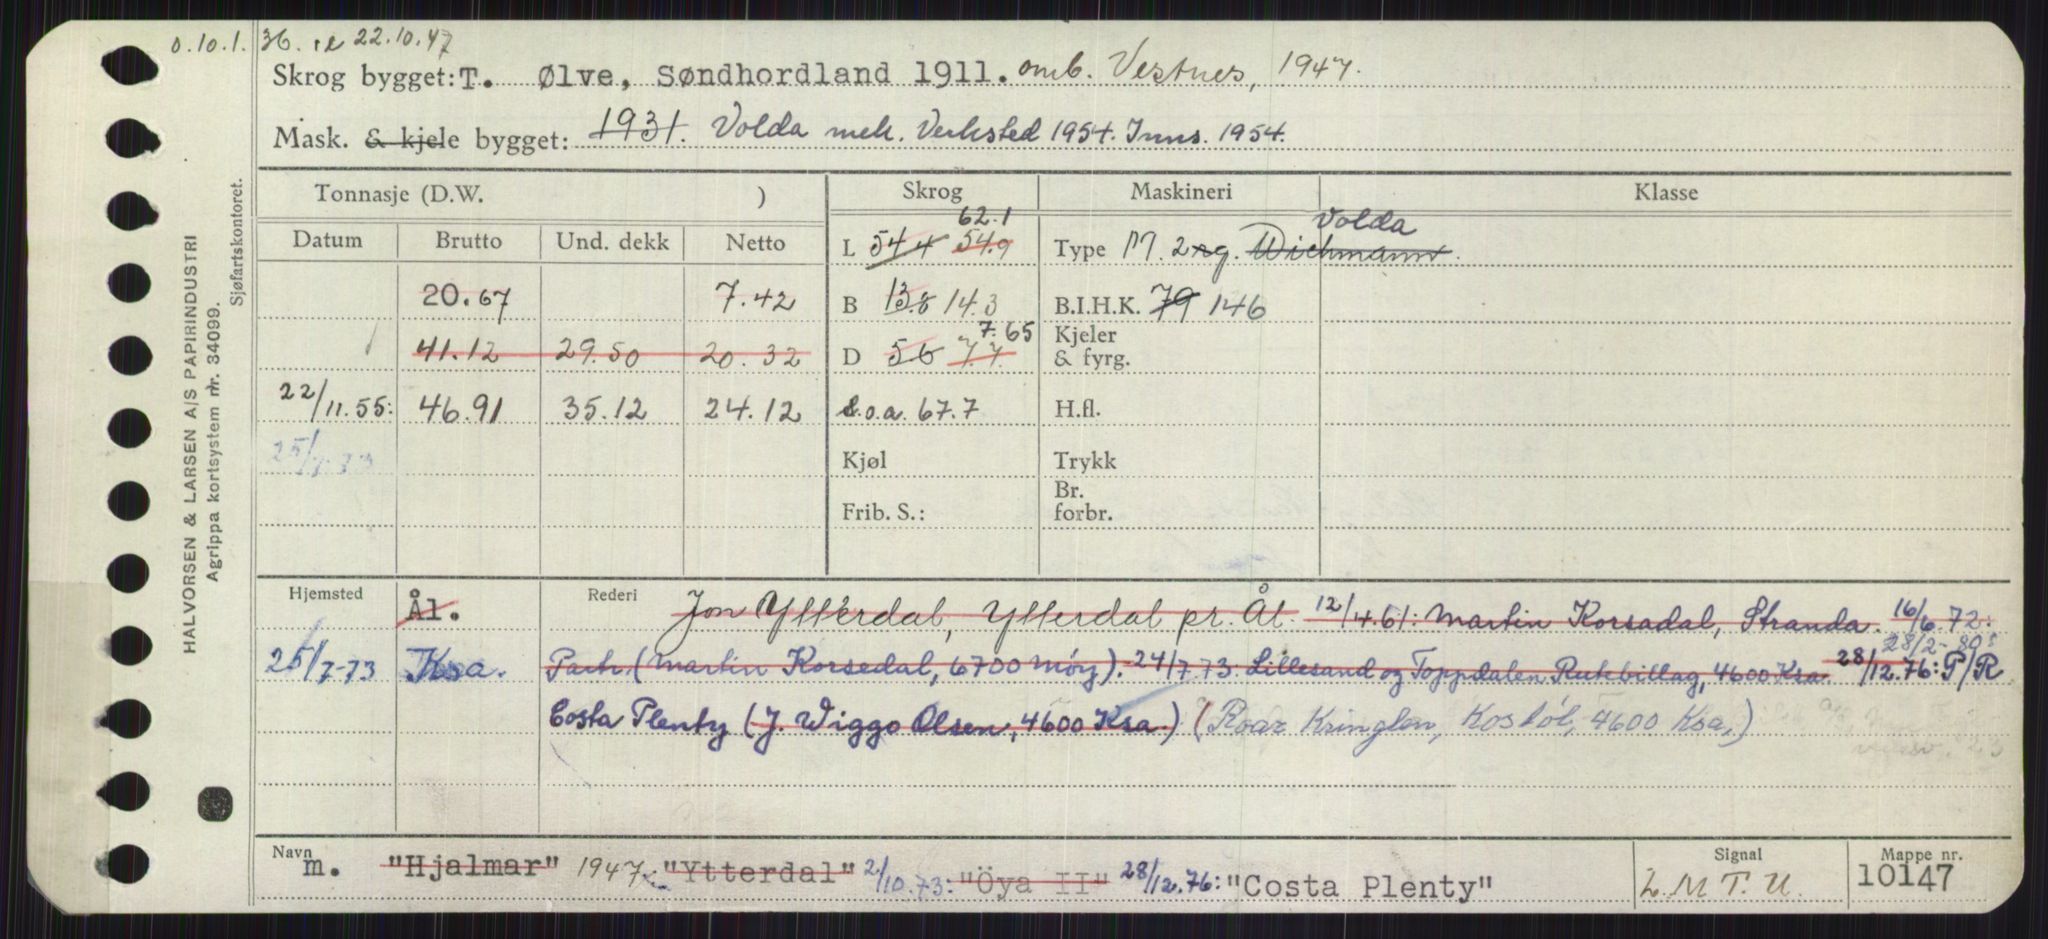 0.10.1. 36. 22.10.47
Skrog bygget: T. Ølve, Søndhordland 1911. omb. Vestnes, 1947.
Mask. & kjele bygget: 1931. Volda mek. Verksted 1954. Inns. 1954.
HALVORSEN & LARSEN A/S PAPIRINDUSTRI
Agrippa kortsystem nr. 34099.
Sjøfartskontoret.
Tonnasje (D.W. ) Skrog Maskineri Klasse
Datum Brutto Und. dekk Netto
62.1
L 54.4 54.9
Volda
Type M. 2 sg. Wichmann.
20.67 7.42
B 13.8 14.3
B.I.H.K. 79 146
41.12 29.50 20.32
7.65
D 5.6 7.7
Kjeler
& fyrg.
22/11.55: 46.91 35.12 24.12
L.o.a. 67.7
H.fl.
25/7-73
Kjøl
Trykk
Frib. S.:
Br.
forbr.
Hjemsted Ål. Rederi Jon Ytterdal, Ytterdal pr. Ål. 12/4.61: Martin Korsadal, Stranda. 16/6.72:
28/2-80:
25/7-73 Ksa. Partr. (Martin Korsedal, 6700 Måøy). 24/7.73: Lillesand og Topdalen Rutebillag, 4600 Ksa. 28/12.76: P/R
Costa Plenty (J. Wiggo Olsen, 4600 Ksa.) (Roar Kringlen, Kosbøl, 4600 Ksa.)
Navn m. "Hjalmar" 1947: "Ytterdal" 2/10.73: "Öya II" 28/12.76: "Costa Plenty"
Signal L.M.T.U.
Mappe nr. 10147